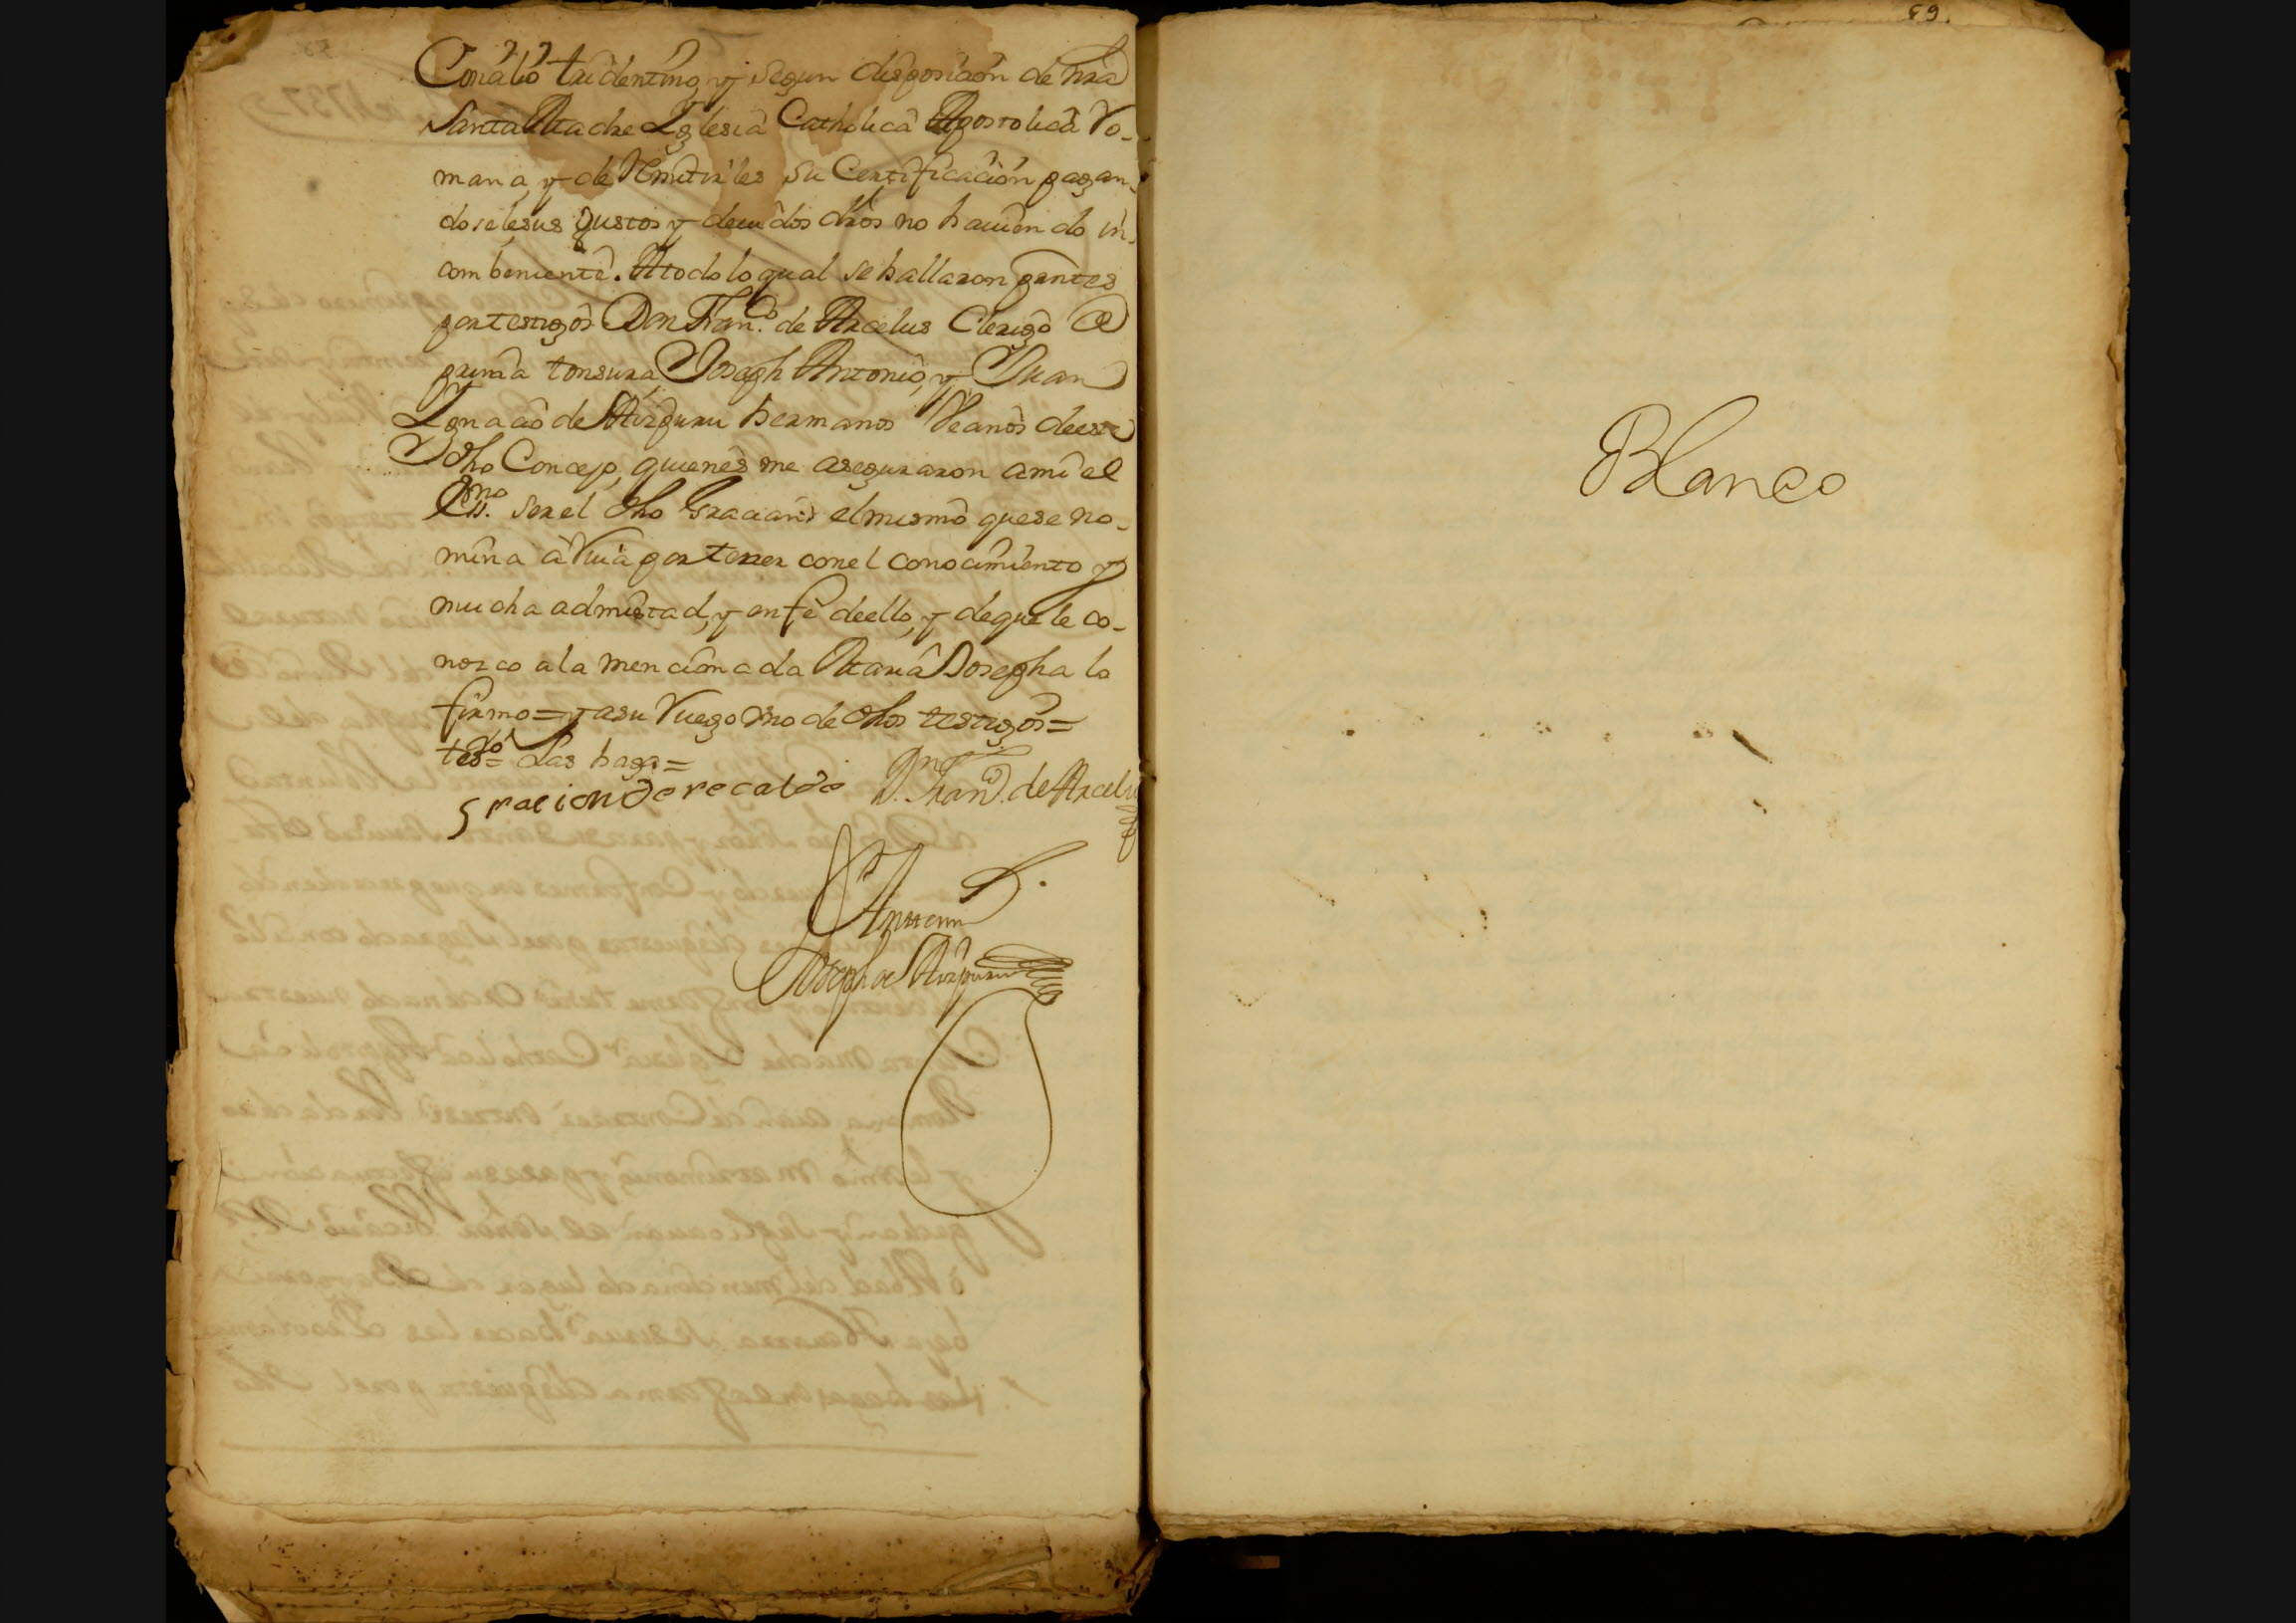 Concilio tridentino, y segun disposicion de nra
Santa Madre Iglesia Catholica Apostolica Ro-
mana, y de Remitirles su Certificacion pagan-
doseles sus Justos y deuidos dros no hauiendo in-
combeniente. A todo lo qual se hallaron presntes
por testigos Don Franco. de Arcelus Clerigo de
prima tonsura, Joseph Antonio, y Juan
Ignacio de Aizpuru hermanos Vecinos de este
dho Concejo, quienes me aseguraron ami el
Essno. ser el dho Gracian el mismo que se no-
mina à Riua por tener con el conocimiento y
mucha admistad, y en fe de ello, y de que le co-
nozco a la mencionada Maria Josepha lo
firmo = y a su Ruego vno de dhos testigos =
tesdo = Las haga =
gracion de recalde Dn. Franco. de Arcelus
Antemi
Joseph de Aizpuru
59.
Blanco